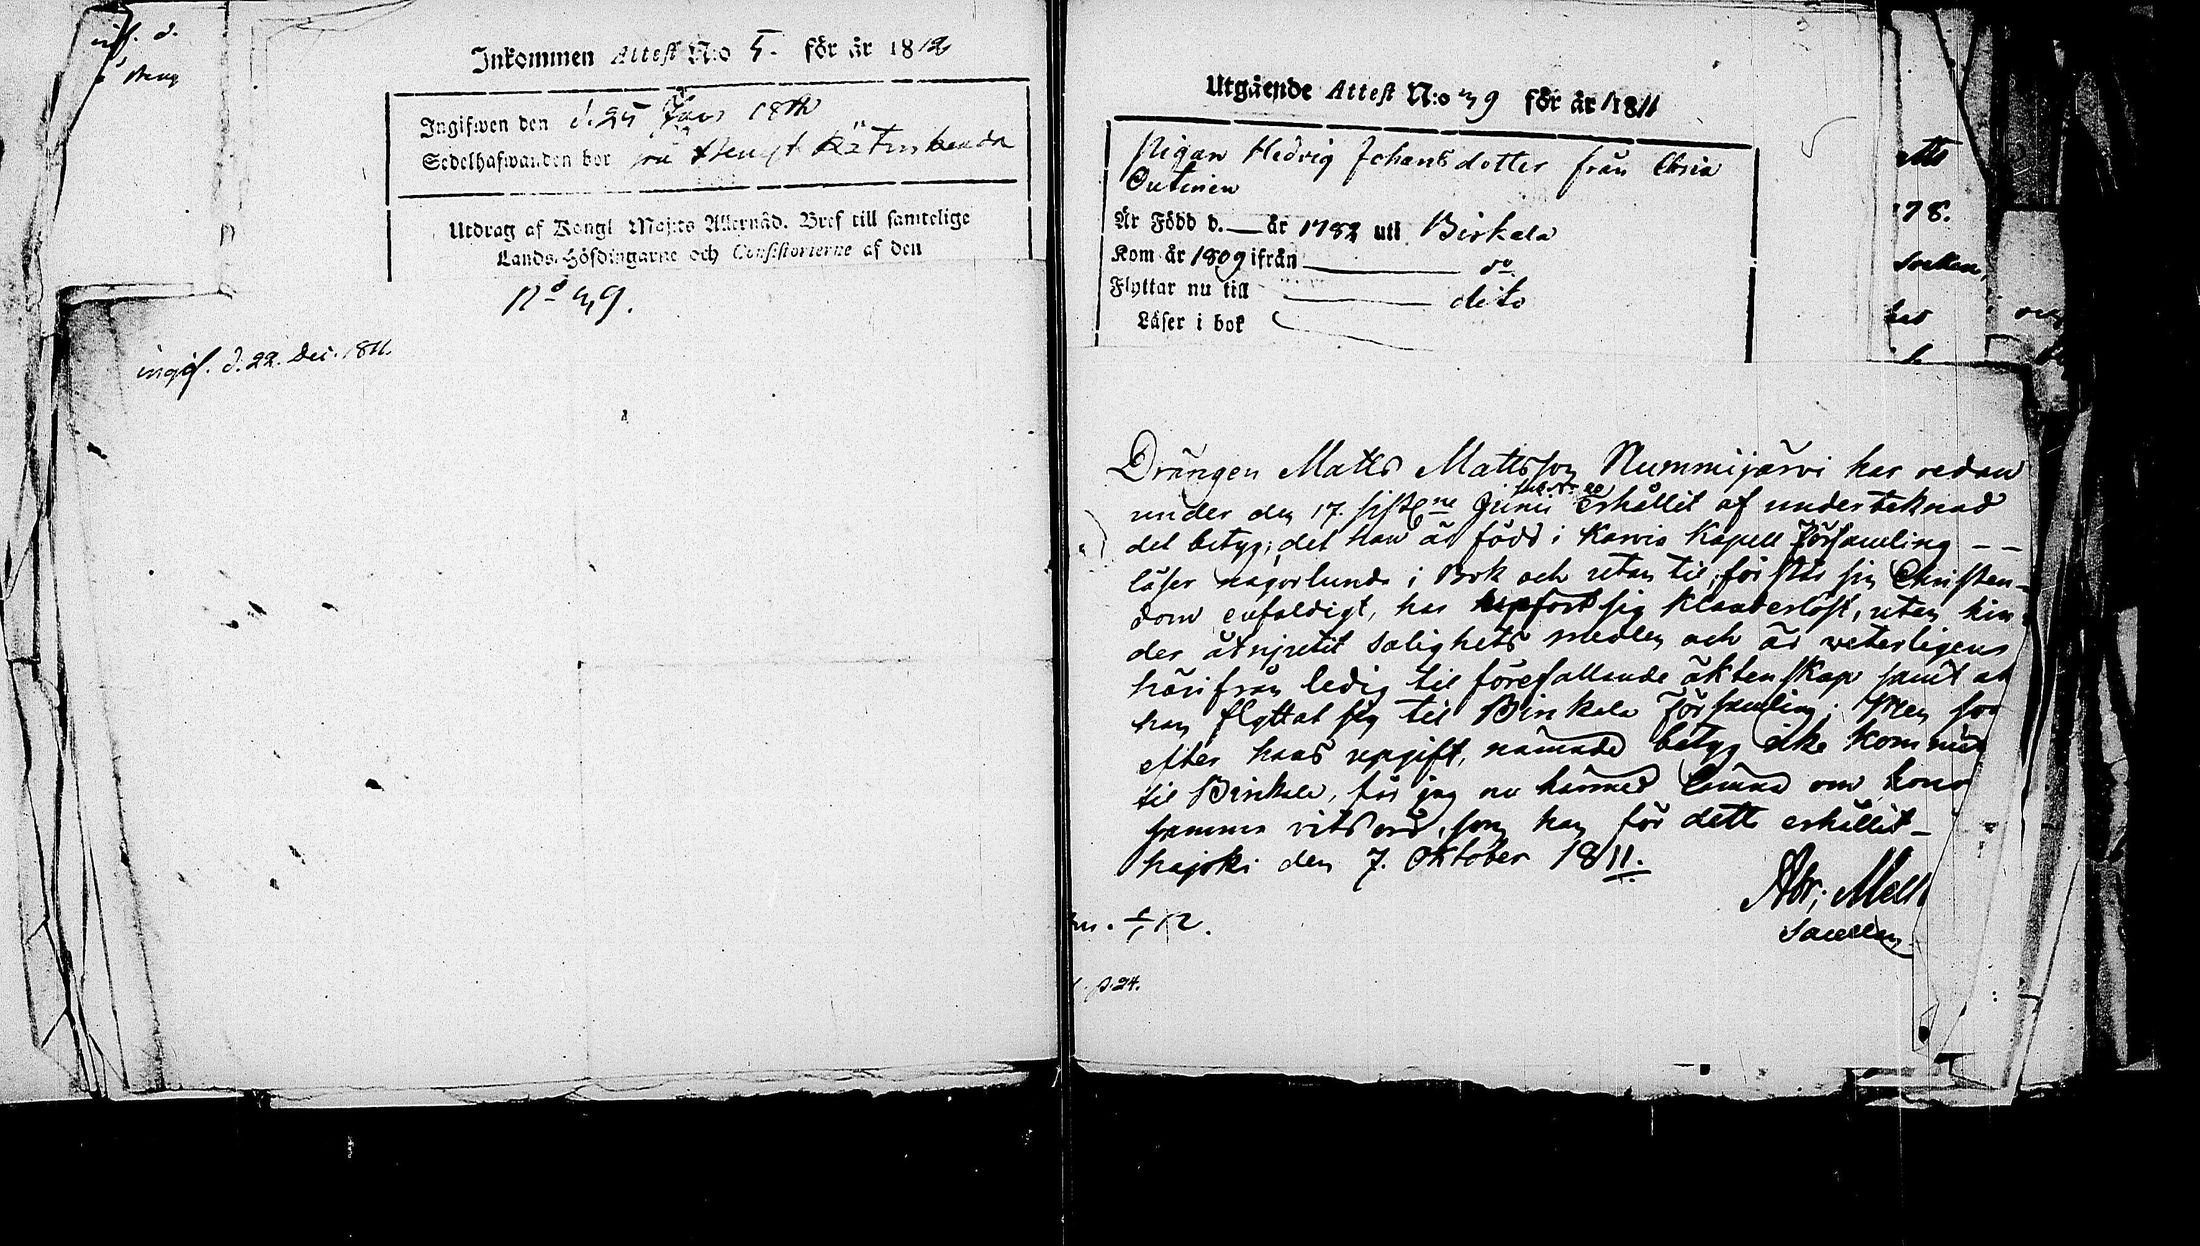 ingif. d.
Inkommen Attest N:o 5. för år 1812
Ingifwen den d. 25 Jan 1812
Sedelhafwanden bor på
Utdrag af Kongl Maj:ts Allernåd. Bref till samtelige
Lands-Höfdingarne och Consistorierne af den
No 39.
ingif. d. 22. Dec. 1811.
Utgående Attest N:o 39 för år 1811
Pigan Hedvig Johansdotter från
Outinen
Är Född d. — år 1782 uti Birkala
Kom år 1809 ifrån — do
Flyttar nu till — dito
Läser i bok
78.
Socken,
Drängen Matts Mattsson Nummijärvi har redan
under den 17. sistl:ne Junii erhållit af undertecknad
det betyg; det han är född i Karvia Kapell Församling - -
läser någorlunda i Bok och utan til, förstår sin Christen-
dom enfaldigt, har upfört sig klanderlöst, utan hin-
der åtnjutit salighets medlen och är veterligens
härifrån ledig til förefallande äktenskap samt at
han flyttat sig til Birkala Församling; Men som
efter hans upgift, nämnde betyg icke kommit
til Birkala, får jag nu härmed lämna om honom
samma vitsord, som han för detta erhållit -
den 7. Oktober 1811.
Abr; Mell
Sacellan
12.
p. 24.